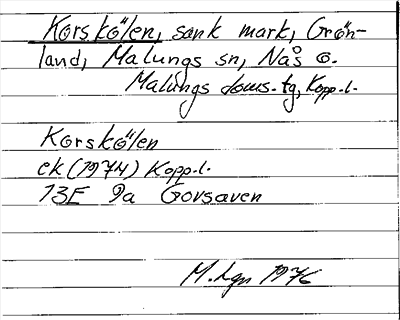 Korskölen, sank mark, Grön-
land, Malungs sn, Nås o.
Malungs doms.tg, Kopp.l.
Korskölen
ek (1974) Kopp.l.
13E 9a Gorsaven
M. 1976